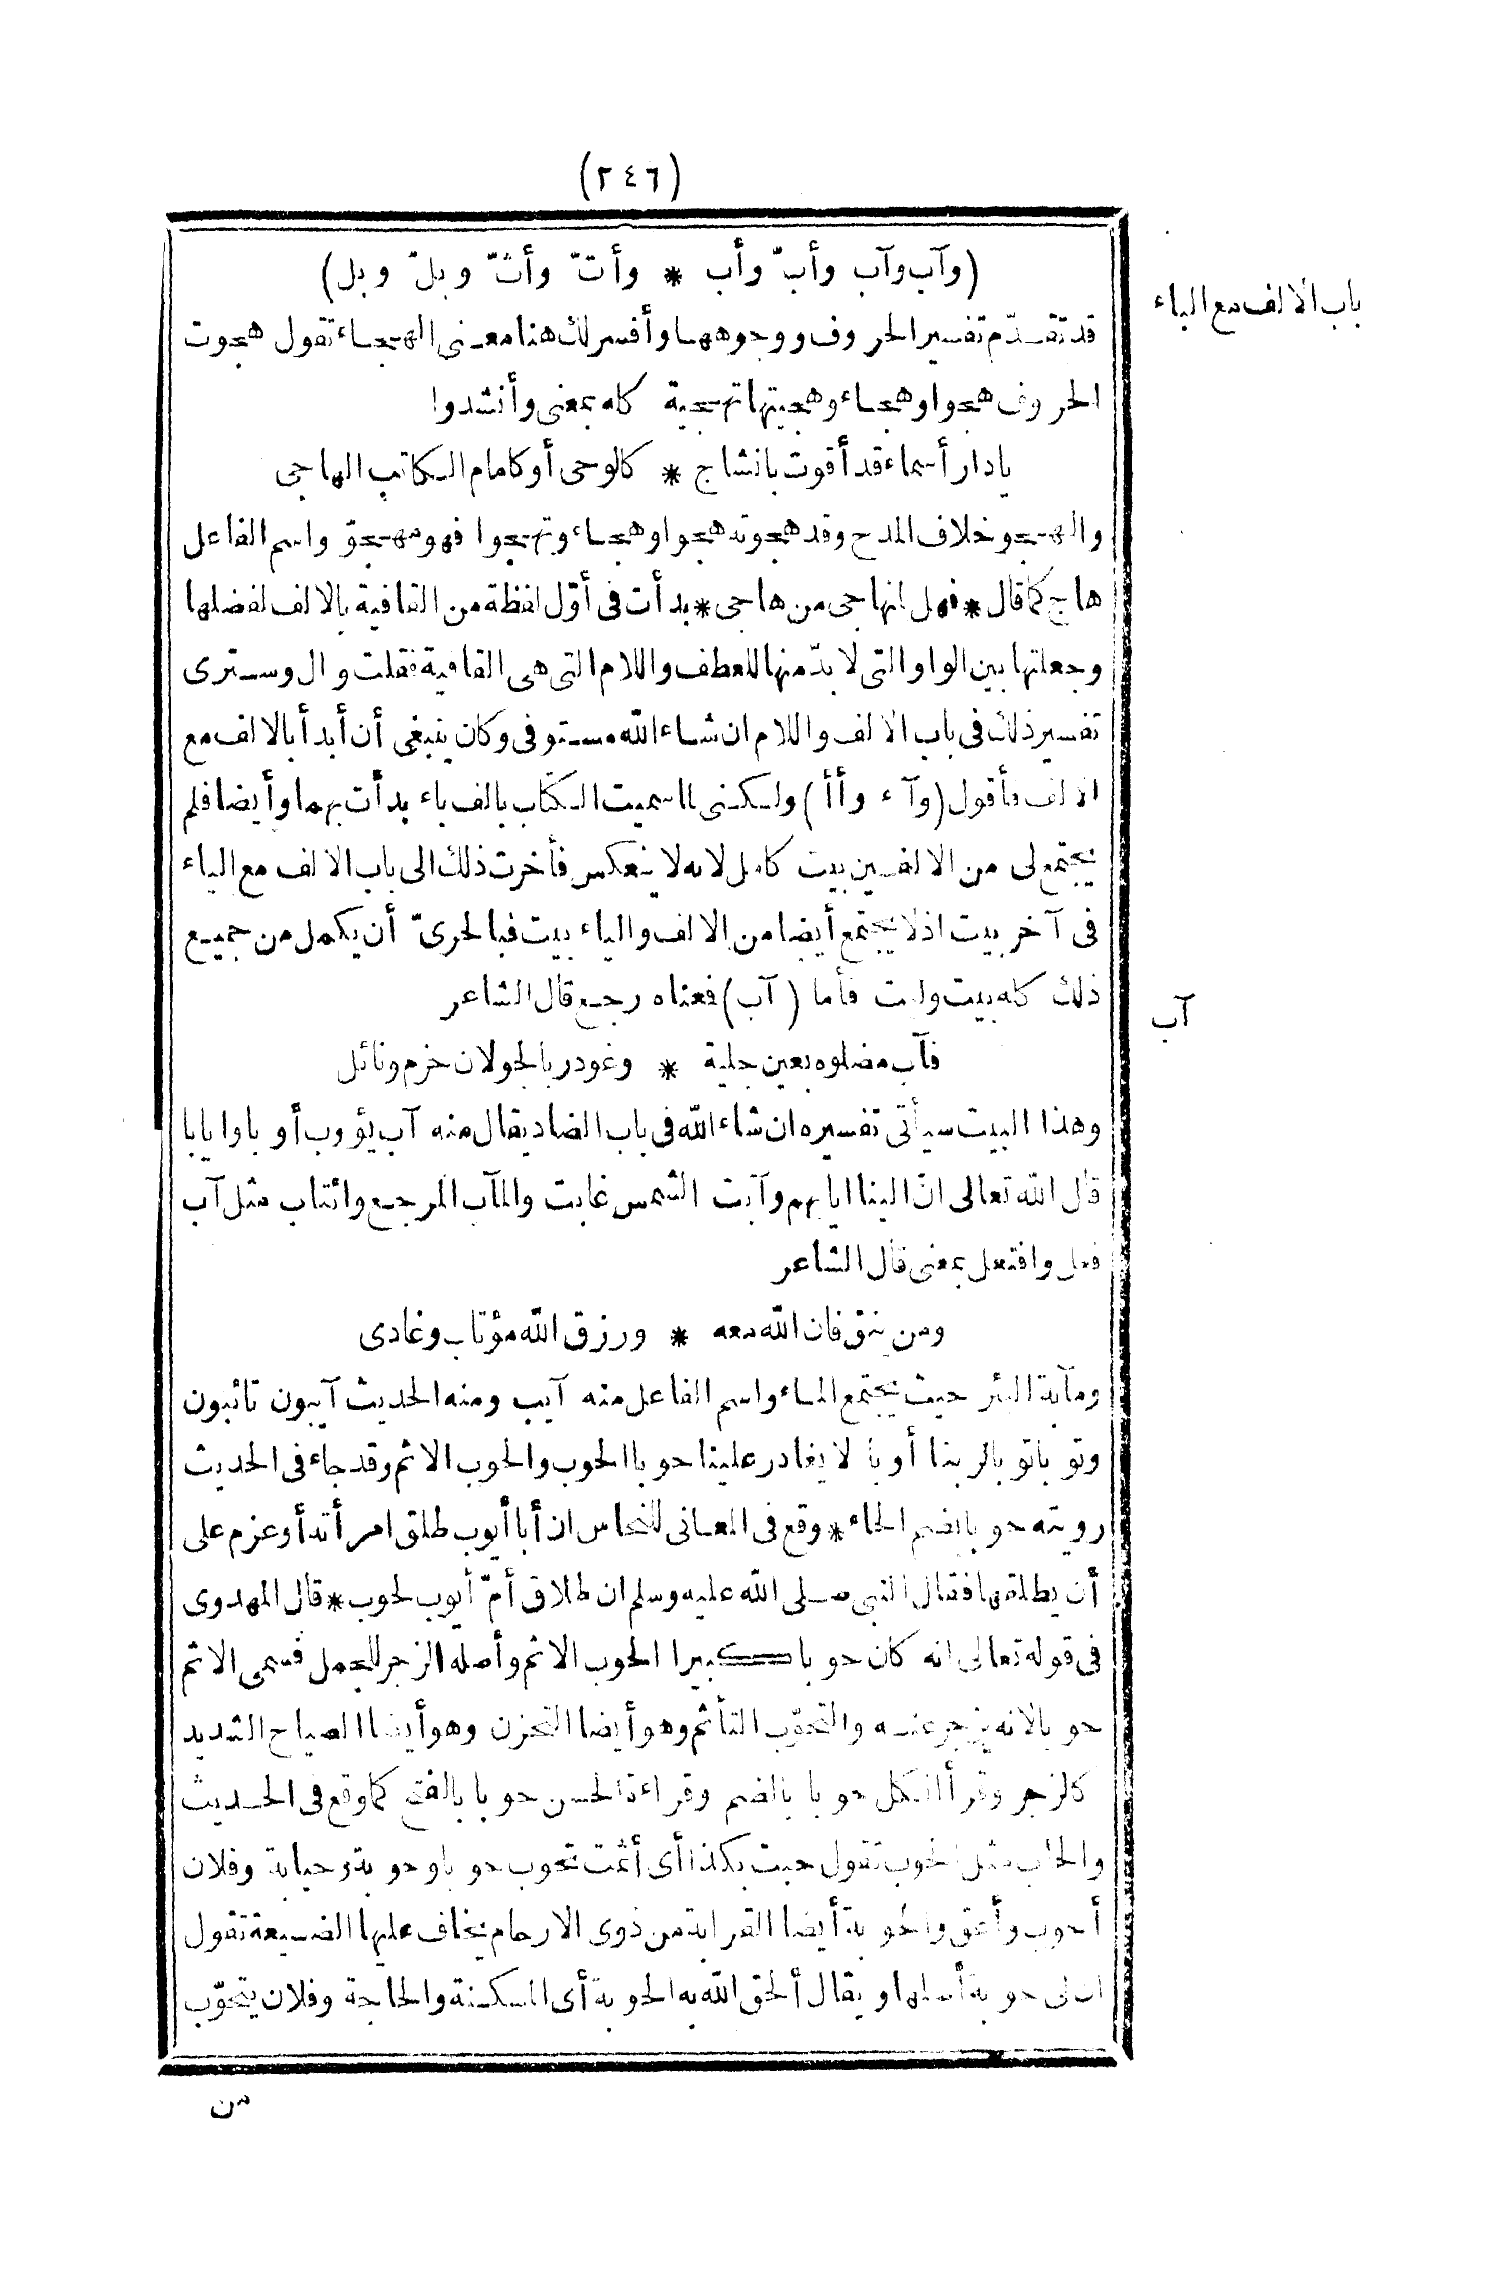 (٢٤٦)
باب الالف مع الباء
(وآب وآب وأبّ وأب * وأتّ وأثّ وبلّ وبل)
قد تقدّم تفسير الحروف ووجوهها وأفسر لك هنا معنى الهجاء تقول هجوت
الحروف هجوا وهجاء وهجيتها تهجية كله بمعنى وأنشدوا
يا دار أسماء قد أقوت بانشاج * كالوحى أو كامام الكاتب الهاجى
والهجو خلاف المدح وقد هجوته هجوا وهجاء وتهجوا فهو مهجوّ واسم الفاعل
هاج كما قال * فهل انهاجى من هاجى * بدأت فى أوّل لفظة من القافية بالالف لفضلها
وجعلتها بين الواو التى لا بدّ منها للعطف واللام التى هى القافية فقلت وال وسترى
تفسير ذلك فى باب الالف واللام ان شاء الله مستوفى وكان ينبغى أن أبدأ بالالف مع
الالف فأقول (وآء وأأ) ولكننى لما سميت الكتاب بالف باء بدأت بهما وأيضا فلم
يجتمع لى من الالفين بيت كامل لانه لا ينعكس فأخرت ذلك الى باب الالف مع الياء
فى آخر بيت اذ لا يجتمع أيضا من الالف والياء بيت فبالحرىّ أن يكمل من جميع
ذلك كله بيت وليت فأما (آب) فمعناه رجع قال الشاعر
آب
فآب مضلوه بعين جلية * وغودر بالجولان حزم ونائل
وهذا البيت سيأتى تفسيره ان شاء الله فى باب الضاد يقال منه آب يؤوب أوبا وايابا
قال الله تعالى انّ الينا ايابهم وآبت الشمس غابت والمآب المرجع وائتاب مثل آب
فعل وافتعل بمعنى قال الشاعر
ومن يتق فان الله معه * ورزق الله مؤتاب وغادى
ومآبة البئر حيث يجتمع الماء واسم الفاعل منه آيب ومنه الحديث آيبون تائبون
وتوبا توبا لربنا أوبا لا يغادر علينا حوبا الحوب والحوب الاثم وقد جاء فى الحديث
رويته حوبا بضم الحاء * وقع فى المعانى للنحاس ان أبا أيوب طلق امرأته أو عزم على
أن يطلقها فقال النبى صلى الله عليه وسلم ان طلاق أمّ أيوب لحوب * قال المهدوى
فى قوله تعالى انه كان حوبا كبيرا الحوب الاثم وأصله الزجر للجمل فسمى الاثم
حوبا لانه يزجر عنه والتحوّب التأثم وهو أيضا التحزن وهو أيضا الصياح الشديد
كالزجر وقرأ الكل حوبا بالضم وقراءة الحسن حوبا بالفتح كما وقع فى الحديث
والحاب مثل الحوب تقول حبت بكذا أى أثمت تحوب حوبا وحوبة وحيابة وفلان
أحوب وأعق والحوبة أيضا القرابة من ذوى الارحام يخاف عليها الضيعة تقول
ان لى حوبة أعولها ويقال ألحق الله به الحوبة أى المسكنة والحاجة وفلان يتحوّب
من